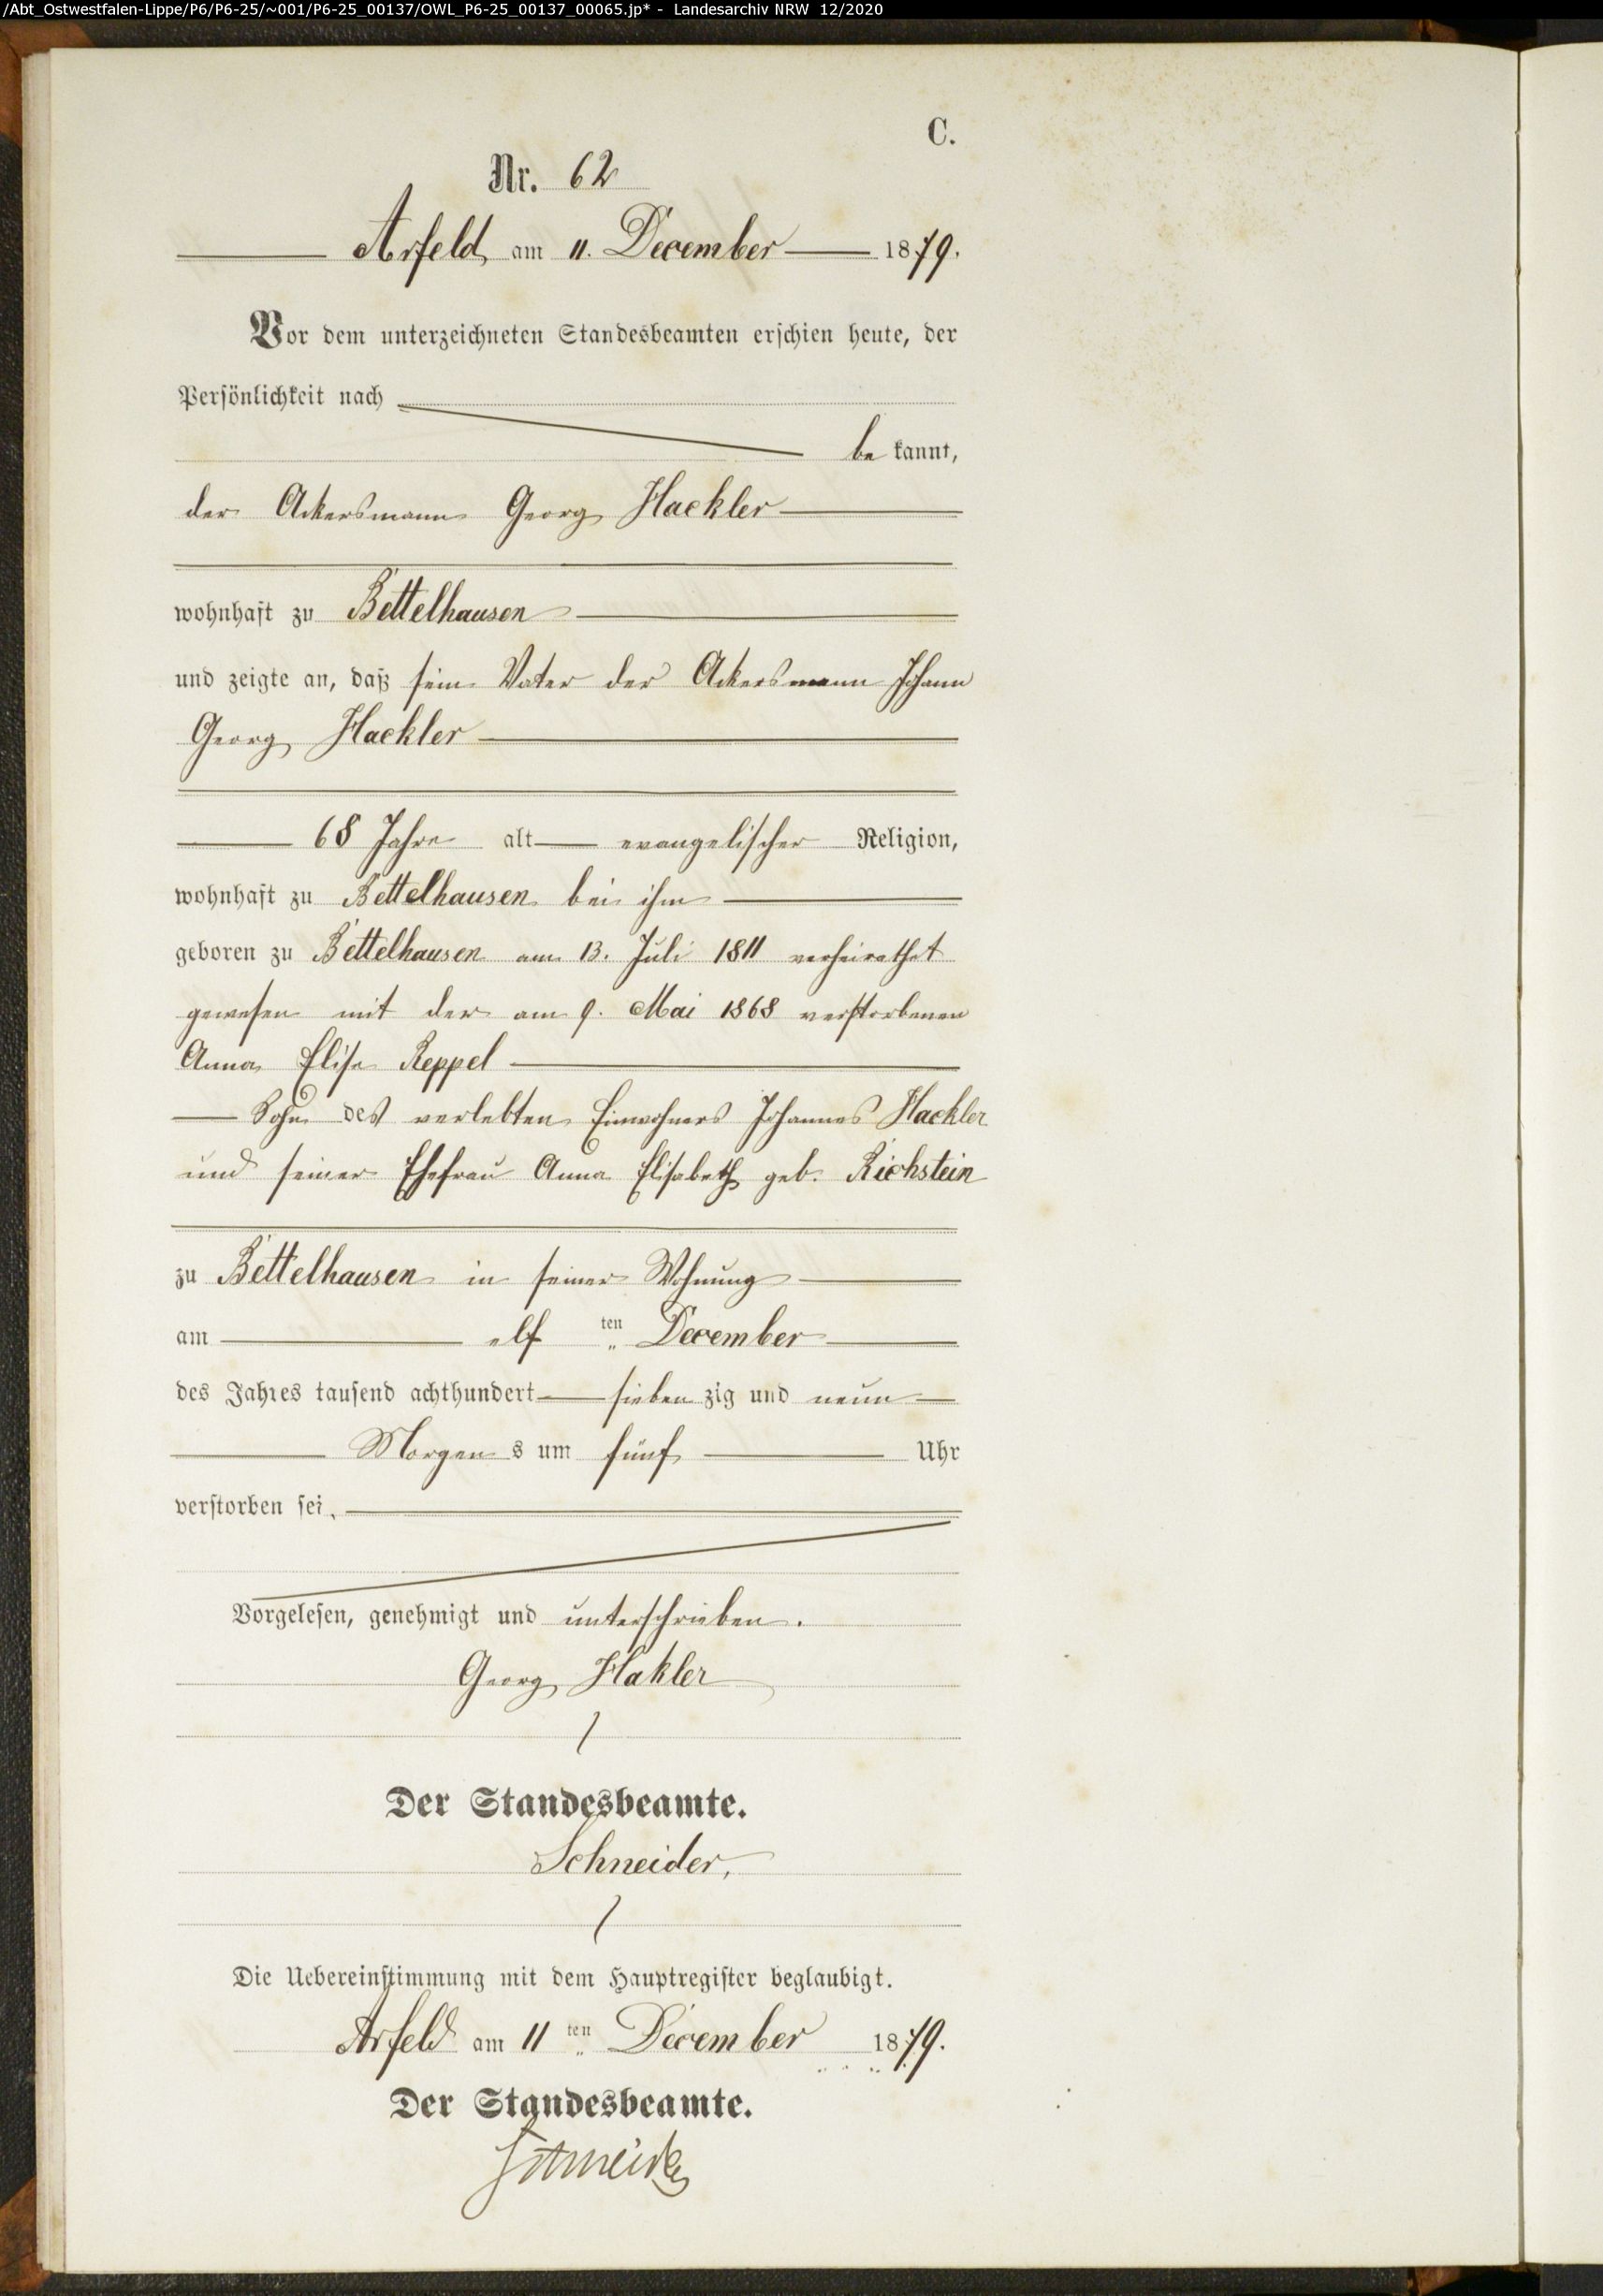 /Abt_Ostwestfalen-Lippe/P6/P6-25/~001/P6-25_00137/OWL_P6-25_00137_00065.jp* - Landesarchiv NRW 12/2020
C.
Nr. 62
Arfeld am 11. December 1879.
Vor dem unterzeichneten Standesbeamten erschien heute, der
Persönlichkeit nach
be kannt,
der Ackersmann Georg Hackler
wohnhaft zu Bettelhausen
und zeigte an, daß sein Vater der Ackersmann Johann
Georg Hackler
68 Jahre alt evangelischer Religion,
wohnhaft zu Bettelhausen bei ihm
geboren zu Bettelhausen am 13. Juli 1811 verheirathet
gewesen mit der am 9. Mai 1868 verstorbenen
Anna Elise Reppel
Sohn des verlebten Einwohners Johannes Hackler
und seiner Ehefrau Anna Elisabeth geb. Richstein
zu Bettelhausen in seiner Wohnung
am elf ten December
des Jahres tausend achthundert sieben zig und neun
Morgen s um fünf Uhr
verstorben sei.
Vorgelesen, genehmigt und unterschrieben.
Georg Hakler
Der Standesbeamte.
Schneider,
Die Uebereinstimmung mit dem Hauptregister beglaubigt.
Arfeld am 11 ten December 1879.
Der Standesbeamte.
Schneider